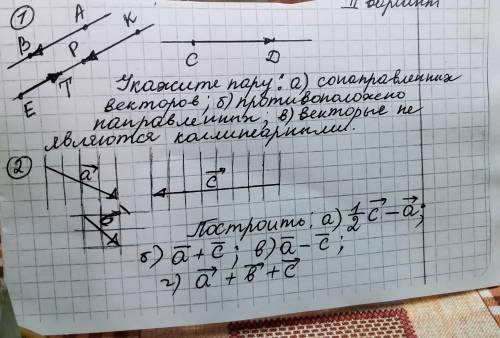 II вариант
①
B A P K
E T
C D
Укажите пару: а) сонаправленных
векторов; б) противоположено
направленных; в) векторые не
являются коллинеарными.
②
a⃗ c⃗
b⃗
Построить: а) 1/2 c⃗ - a⃗;
б) a̅ + c̅; в) a̅ - c̅;
г) a⃗ + b⃗ + c⃗